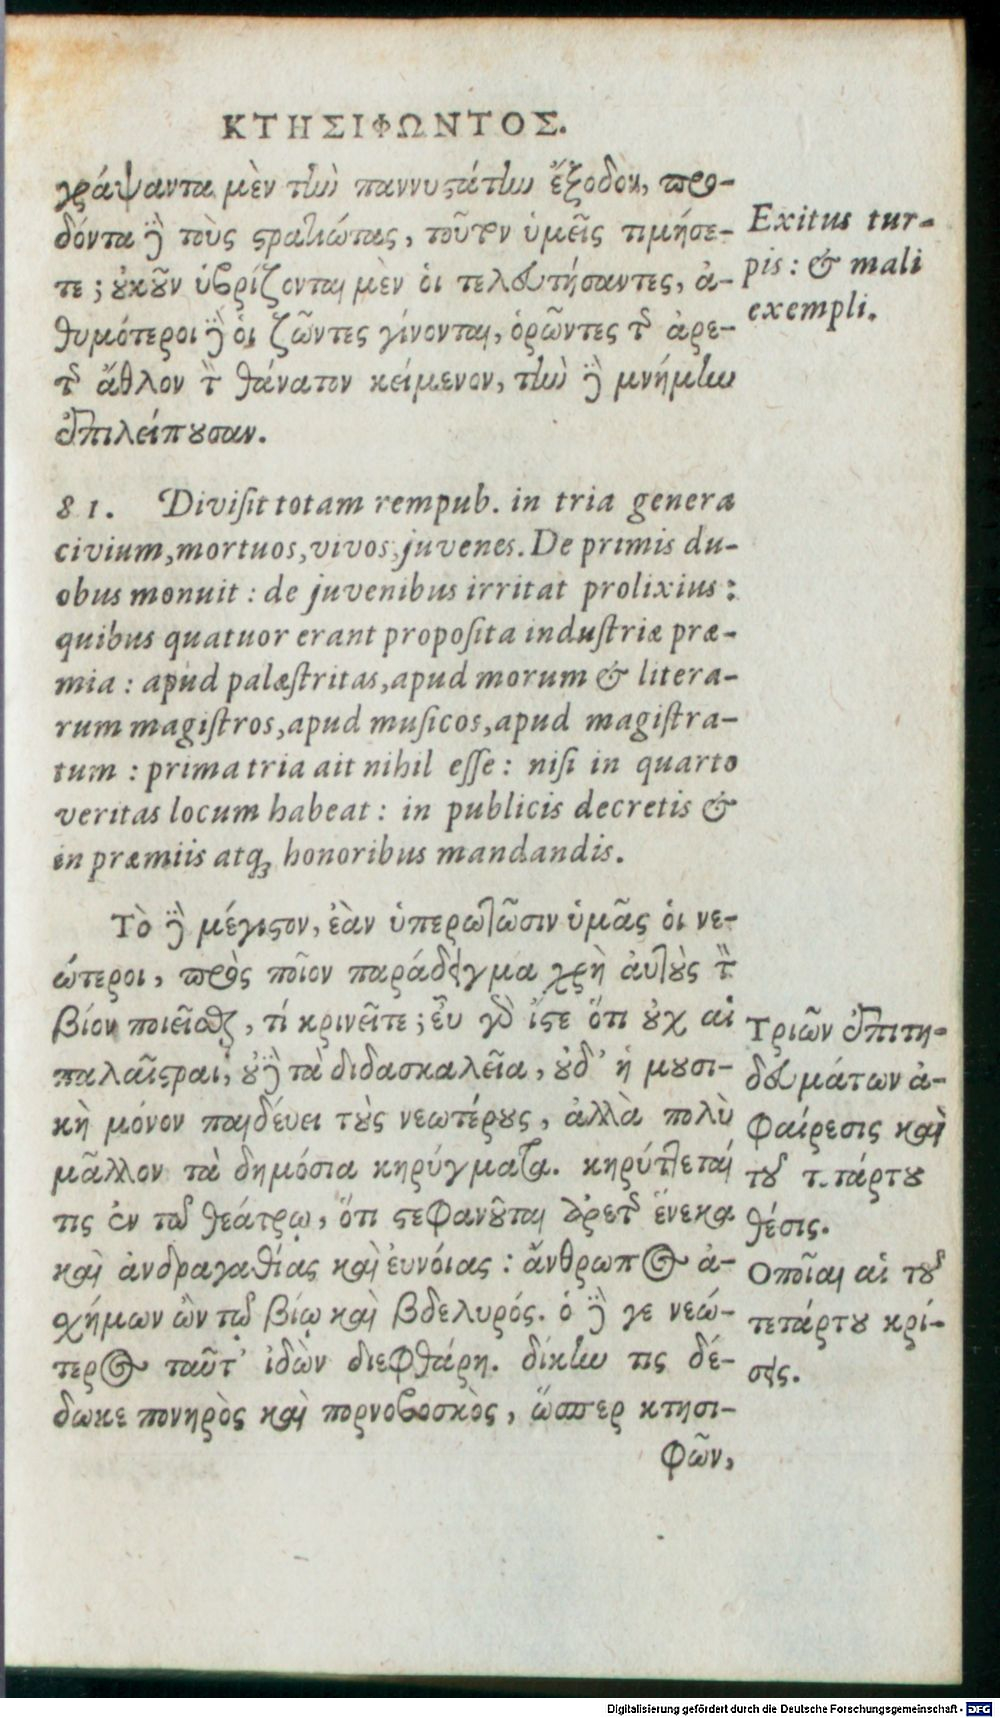 ΚΤΗΣΙΦΩΝΤΟΣ.
γράψαντα μὲν τὴν παννυστάτην ἔξοδον, προ-
δόντα δὲ τοὺς στρατιώτας, τοῦτον ὑμεῖς τιμήσε-
τε; οὐκοῦν ὑβρίζονται μὲν οἱ τελευτήσαντες, ἀ-
θυμότεροι δὲ οἱ ζῶντες γίνονται, ὁρῶντες τῆς ἀρε-
τῆς ἄθλον τὸν θάνατον κείμενον, τὴν δὲ μνήμην
ἐπιλείπουσαν.
Exitus tur-
pis: & mali
exempli.
81. Divisit totam rempub. in tria genera
civium, mortuos, vivos, juvenes. De primis du-
obus monuit: de juvenibus irritat prolixius:
quibus quatuor erant proposita industriæ præ-
mia: apud palæstritas, apud morum & litera-
rum magistros, apud musicos, apud magistra-
tum: prima tria ait nihil esse: nisi in quarto
veritas locum habeat: in publicis decretis &
in præmiis atq; honoribus mandandis.
Τὸ δὲ μέγιστον, ἐὰν ὑπερωτῶσιν ὑμᾶς οἱ νε-
ώτεροι, πρὸς ποῖον παράδειγμα χρὴ αὐτοὺς τὸν
βίον ποιεῖσθαι, τί κρινεῖτε; εὖ γὰρ ἴστε ὅτι οὐχ αἱ
παλαῖστραι, οὐδὲ τὰ διδασκαλεῖα, οὐδ' ἡ μουσι-
κὴ μόνον παιδεύει τοὺς νεωτέρους, ἀλλὰ πολὺ
μᾶλλον τὰ δημόσια κηρύγματα. κηρύττεταί
τις ἐν τῷ θεάτρῳ, ὅτι στεφανοῦται ἀρετῆς ἕνεκα
καὶ ἀνδραγαθίας καὶ εὐνοίας: ἄνθρωπος ἀ-
σχήμων ὢν τῷ βίῳ καὶ βδελυρός. ὁ δέ γε νεώ-
τερος ταῦτ' ἰδὼν διεφθάρη. δίκην τις δέ-
δωκε πονηρὸς καὶ πορνοβοσκὸς, ὥσπερ κτησι-
φῶν,
Τριῶν ἐπιτη-
δευμάτων ἀ-
φαίρεσις καὶ
τοῦ τετάρτου
θέσις.
Οποῖαι αἱ τοῦ
τετάρτου κρί-
σεις.
Digitalisierung gefördert durch die Deutsche Forschungsgemeinschaft - DFG